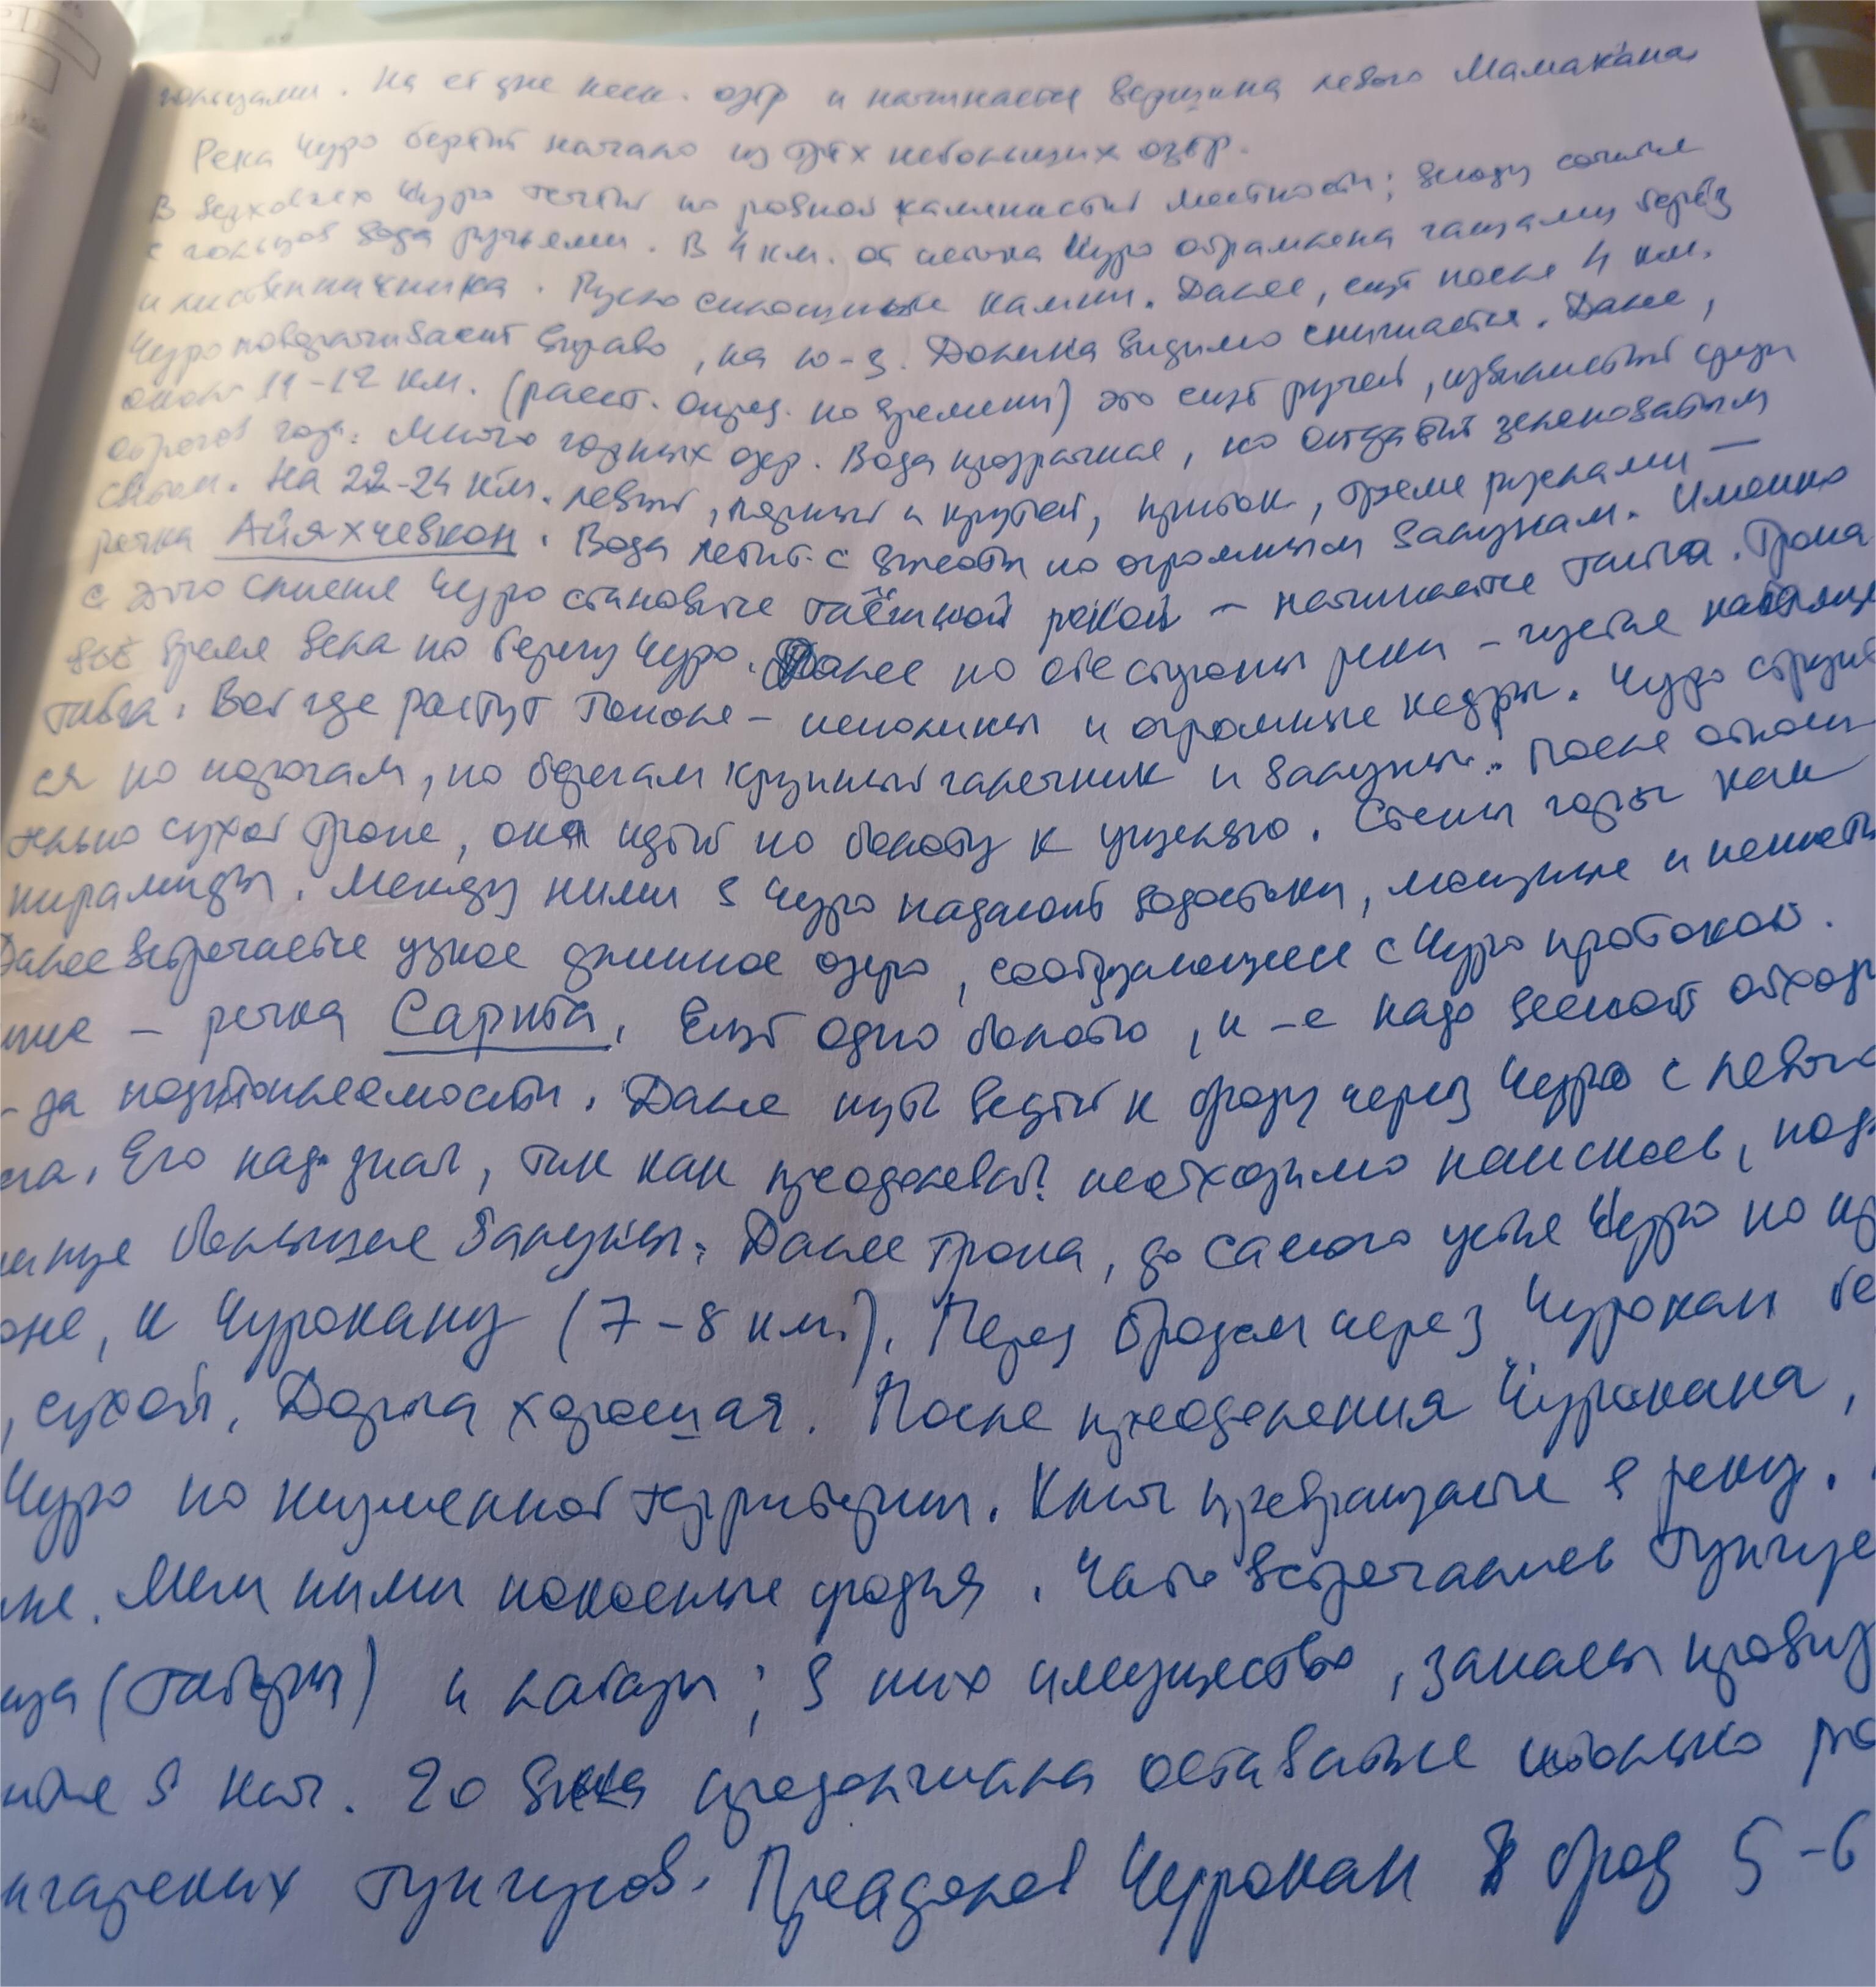 гольцами. На её дне неск. озёр и начинается вершина левого Мамакана
Река Чуро берёт начало из трёх небольших озёр.
В верховьях Чуро течёт по ровной каменистой местности; всюду
с гольцов вода ручьями. В 4 км. от истока Чуро обрамлена чащами берёз
и лиственничника. Русло сплошные камни. Далее, ещё после 4 км.
Чуро поворачивает вправо, на ю-з. Долина видимо снижается. Далее,
около 11-12 км. (расст. опред. по времени) это ещё ручей, извилистый среди
отрогов гор. Много горных озёр. Вода прозрачная, но отдаёт зеленоватым
светом. На 22-24 км. левый, и крутой, приток, тремя руслами —
речка Айяхчевкон. Вода летит с высоты по огромным валунам. Именно
с этого Чуро становится таёжной рекой – начинается тайга. Тропа
всё время вела по берегу Чуро. Далее по обе стороны реки – густая настояще
тайга. Вот где растут тополя – исполины и огромные кедры. Чуро струит
ся по порогам, по берегам крупный галечник и валуны. После относи
тельно сухой тропе, она идёт по болоту к ущелью. Стены горы как
пирамиды. Между ними в Чуро падают водостоки, мощные и
Далее встречается узкое длинное озеро, сообщающееся с Чуро протокой.
– речка Сарита. Ещё одно болото, к-е надо весной обход
- за подтопляемости. Далее путь ведёт к броду через Чуро с левого
Его надо знать, так как преодолевать необходимо наискось, под
большие валуны. Далее тропа, до самого устья Чуро по пр
оне, к Чурокану (7-8 км.). Перед бродом через Чурокан бе
, сухой. Дорога хорошая. После преодоления Чурокана,
Чуро по низменной территории. Ключ превращается в реку.
ми покосные угодья. Часто встречались тунгус
(таборы) и лабазы; в них имущество, запасы провиз
в нач. 20 века предпочитала оставаться только
тунгусов. Преодолев Чурокан в брод 5-6